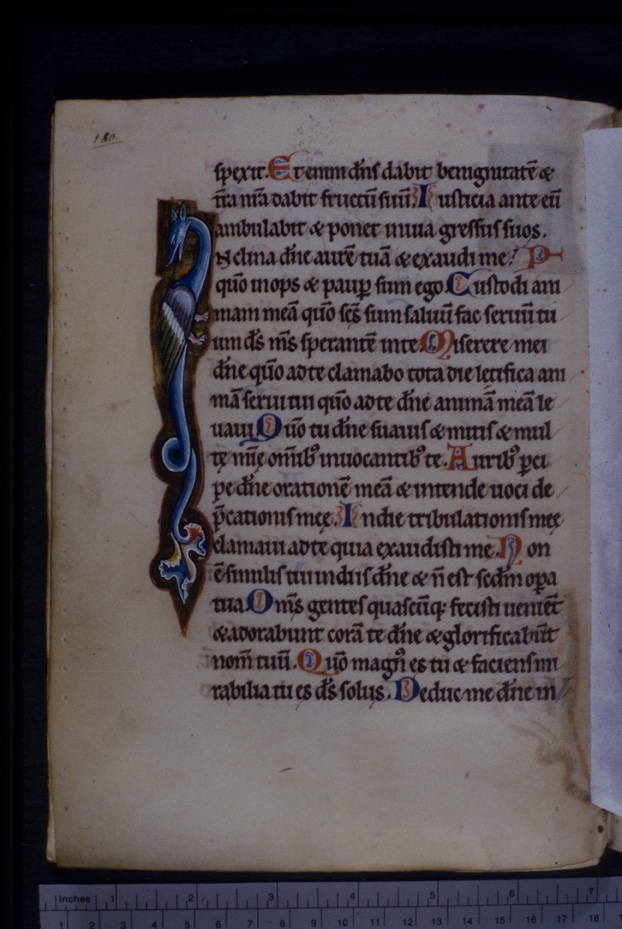 180.
spexit. Etenim dñs dabit benignitatē &
tr̄a nr̄a dabit fructū suū. Iusticia ante eū
ambulabit & ponet in uia gressus suos.
Nclina dñe aurē tuā & exaudi me: P
quō inops & paup̄ sum ego. Custodi ani
mam meā quō sc̄s sum saluū fac seruū tu
um d̄s m̄s sperantē in te. Miserere mei
dñe quō ad te clamabo tota die letifica ani
mā serui tui quō ad te dñe animā meā le
uaui. Quō tu dñe suauis & mitis & mul
tę mīę omīb᷒ inuocantib᷒ te. Aurib᷒ p̄ci
pe dñe orationē meā & intende uoci de
p̄cationis meę. In die tribulationis meę
clamaui ad te quia exaudisti me. Non
ē similis tui in diis dñe & n̄ est sc̄dm opa
tua. Om̄s gentes quascūq; fecisti ueniēt
& adorabunt corā te dñe & glorificabūt
nom̄ tuū. Quō magn̄ es tu & faciens mi
rabilia tu es d̄s solus. Deduc me dñe in
Inches 1 2 3 4 5 6 7
1 2 3 4 5 6 7 8 9 10 11 12 13 14 15 16 17 18